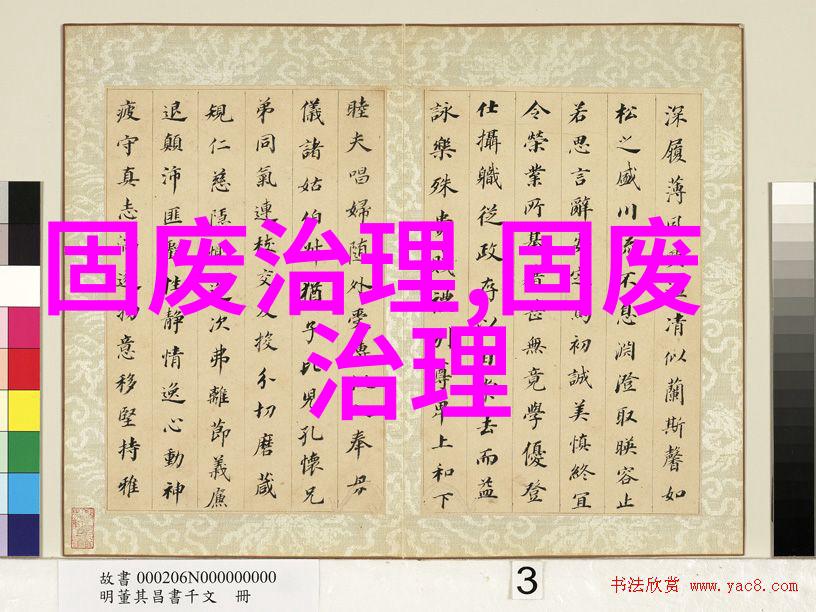 深履薄清似蘭斯馨如
松之盛川流不息淵澄取暎容止
若思言辭安定初誠美慎終宜
令榮業所基甚無竟學優登
仕攝職從政存以甘棠去而益
詠樂殊貴賤禮別尊卑上和下
睦夫唱婦隨外受奉母
儀諸姑伯叔猶子比兒孔懷兄
弟同氣連枝交友投分切磨箴
規仁慈隱惻造次弗離節義廉
退顛沛匪虧性靜情逸心動神
疲守真志滿逐物意移堅持雅
固废治理,固废
治理
故書 000206N000000000
明董其昌書千文 冊
3
书法欣赏 www.yac8.com